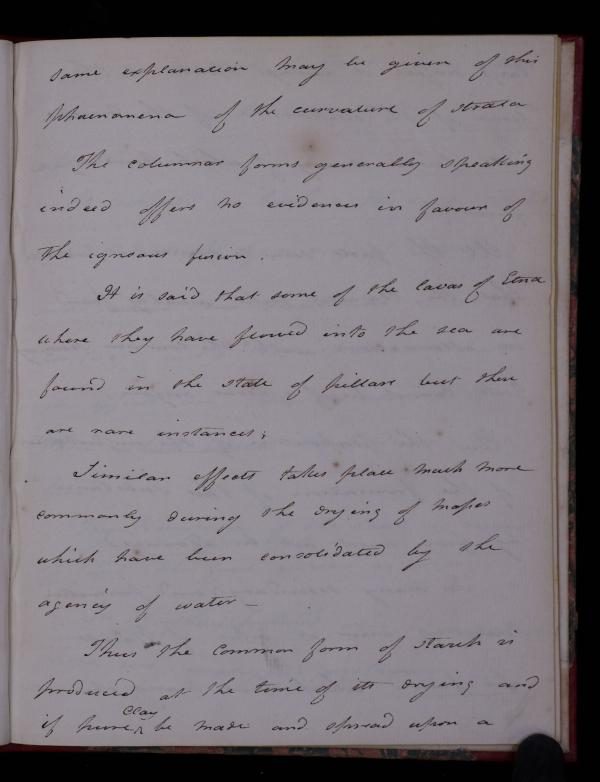 same explanation may be given of this
phaenomena of the curvature of strata
The columnar forms generally speaking
indeed offers no evidences in favour of
the igneous fusion.
It is said that some of the lavas of Etna
where they have flowed into the sea are
found in the state of pillars but these
are rare instances;
Similar effects takes place much more
commonly during the drying of masses
which have been consolidated by the
agency of water –
Thus the common form of starch is
produced at the time of its drying and
if pure clay be made and spread upon a